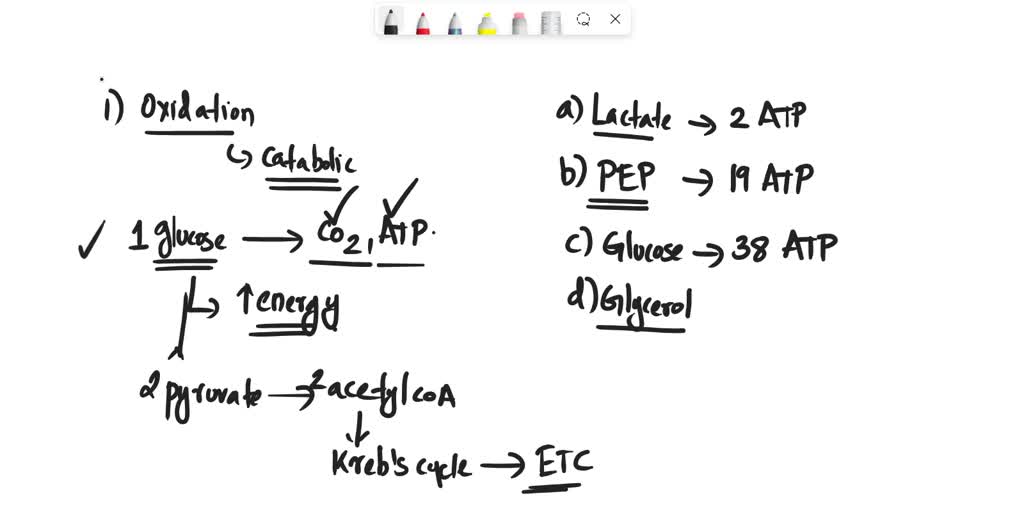 i) Oxidation
↳ Catabolic
✓ 1 glucose → CO2, ATP.
↳ ↑ energy
2 pyruvate → 2 acetyl coA
↓
Kreb's cycle → ETC
a) Lactate → 2 ATP
b) PEP → 19 ATP
c) Glucose → 38 ATP
d) Glycerol